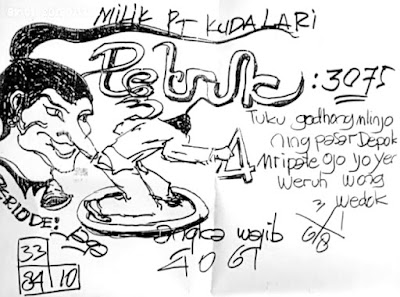 MILIK PT KUDA LARI
: 3075
3
4
Tuku godhong mlinjo
ning pasar Depok
Mripate ojo yoyer
weruh wong
wedok
angka wajib
4 0 6 1
2 1
6 8
33
84 10